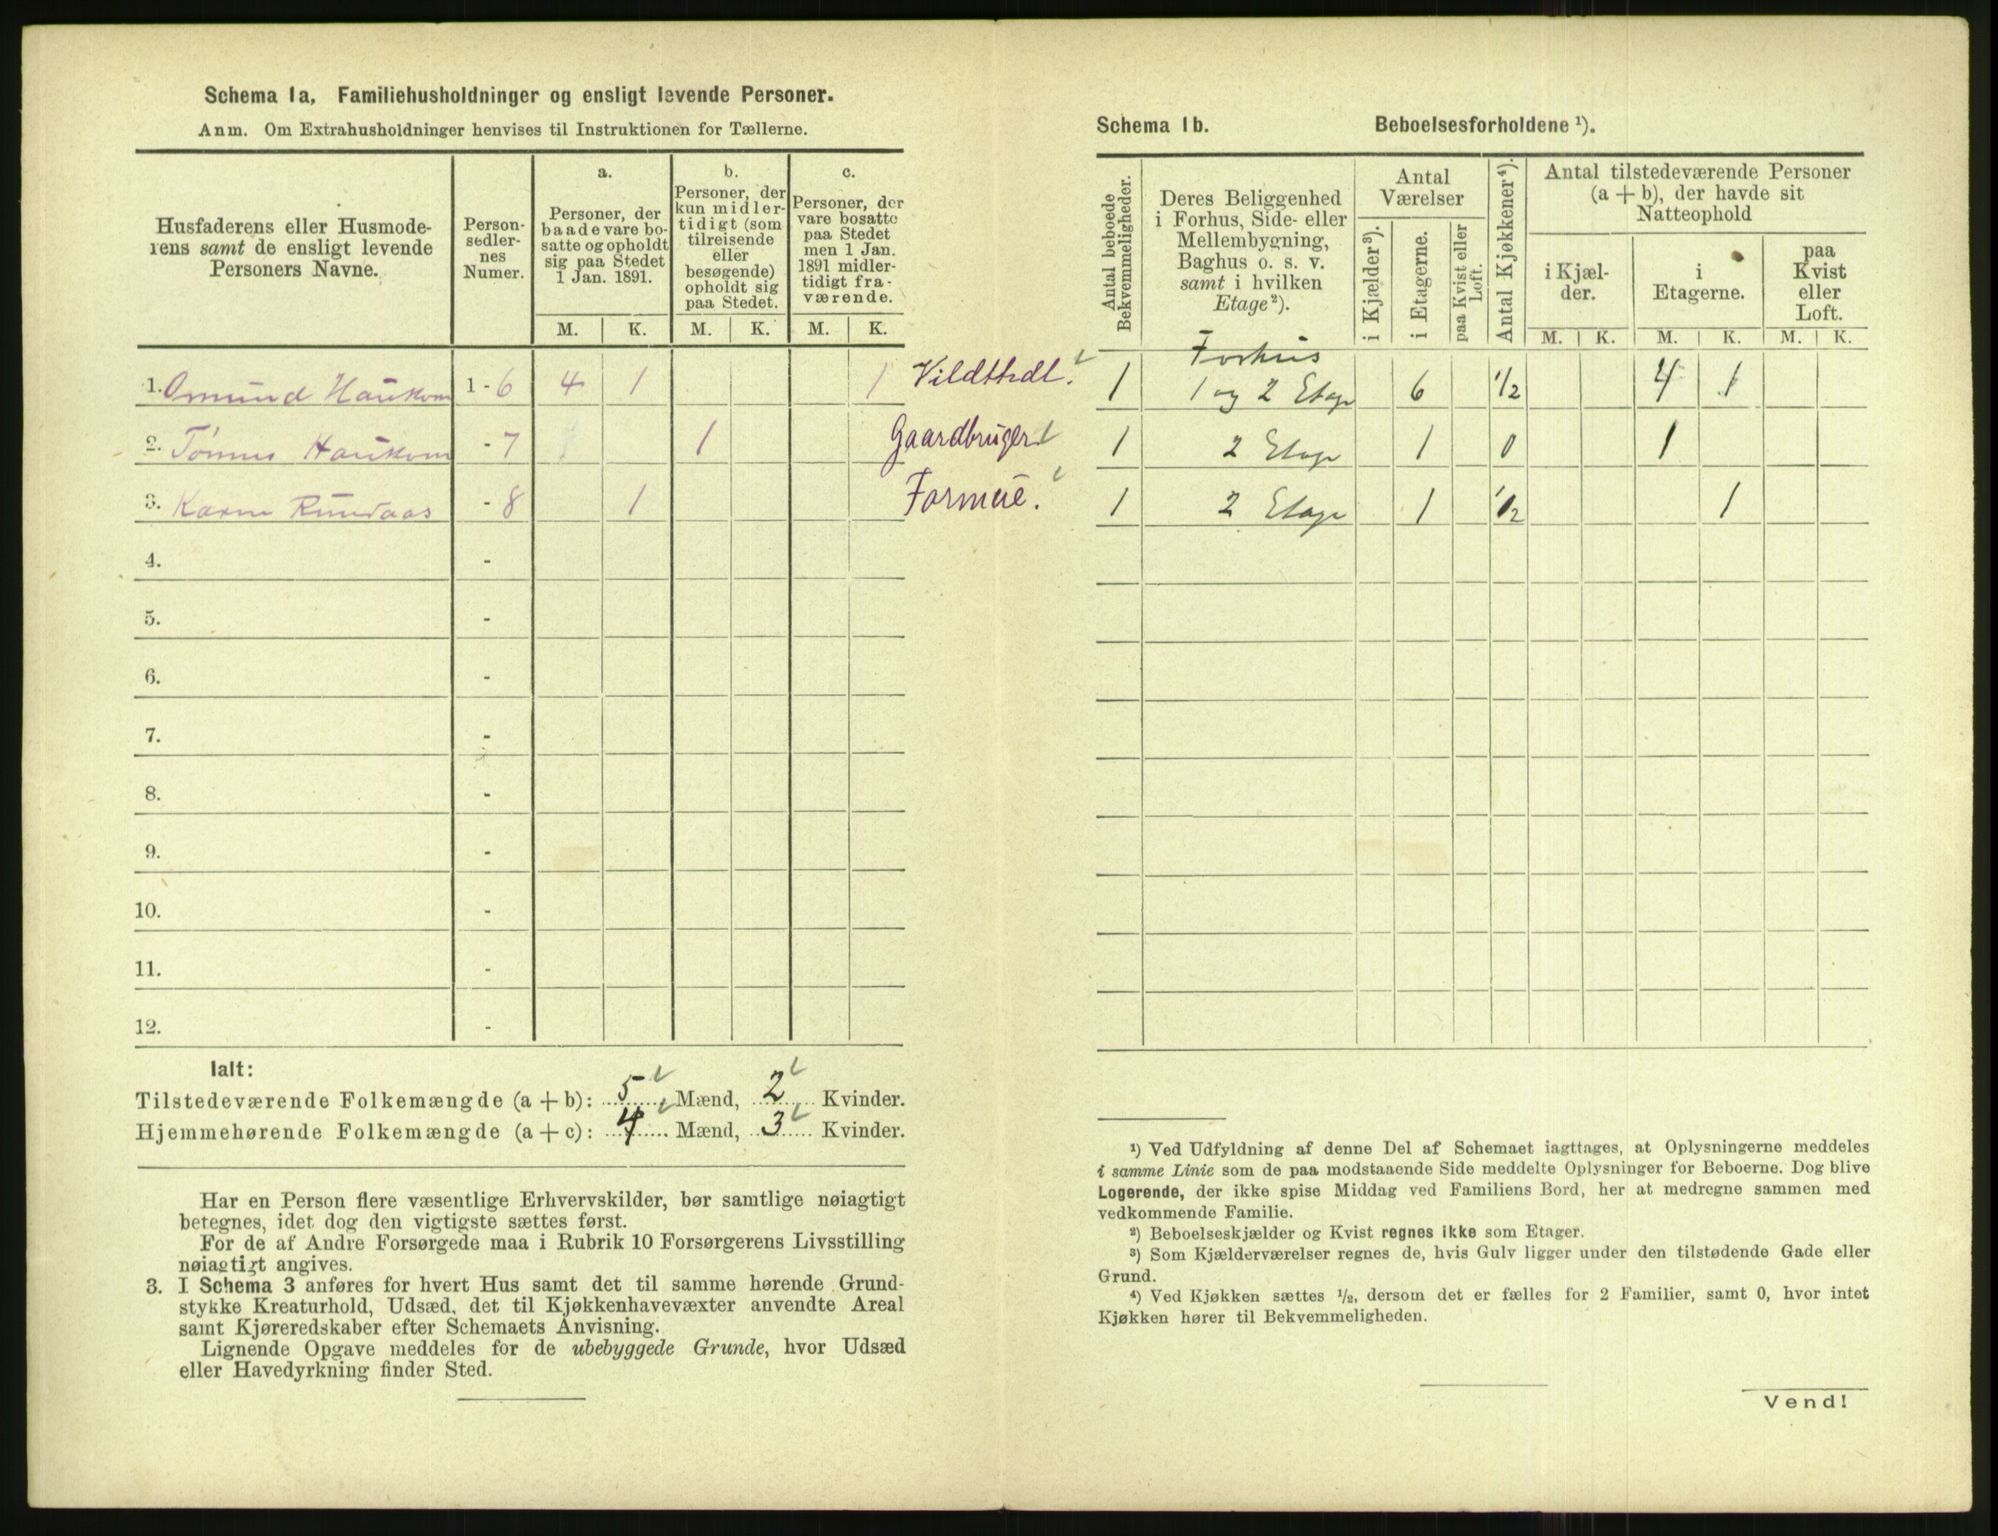 Schema 1a. Familiehusholdninger og ensligt levende Personer.
Anm. Om Extrahusholdninger henvises til Instruktionen for Tællerne.
Husfaderens eller Husmode-
rens samt de ensligt levende
Personers Navne.
Person-
sedler-
nes
Numer.
a.
Personer, der
baade vare bo-
satte og opholdt
sig paa Stedet
1 Jan. 1891.
b.
Personer, der
kun midler-
tidigt (som
tilreisende
eller
besøgende)
opholdt sig
paa Stedet.
c.
Personer, der
vare bosatte
paa Stedet
men 1 Jan.
1891 midler-
tidigt fra-
værende.
M. K. M. K. M. K.
1. Omund Haukom 1 - 6 4 1 1 Vildthdl.
2. Tønnes Haukom - 7 1 Gaardbruger
3. Karen - 8 1 Formue.
4. -
5. -
6. -
7. -
8. -
9. -
10. -
11. -
12. -
Ialt:
Tilstedeværende Folkemængde (a + b): 5 Mænd, 2 Kvinder.
Hjemmehørende Folkemængde (a + c): 4 Mænd, 3 Kvinder.
Har en Person flere væsentlige Erhvervskilder, bør samtlige nøiagtigt
betegnes, idet dog den vigtigste sættes først.
For de af Andre Forsørgede maa i Rubrik 10 Forsørgerens Livsstilling
nøiagtigt angives.
3. I Schema 3 anføres for hvert Hus samt det til samme hørende Grund-
stykke Kreaturhold, Udsæd, det til Kjøkkenhavevæxter anvendte Areal
samt Kjøreredskaber efter Schemaets Anvisning.
Lignende Opgave meddeles for de ubebyggede Grunde, hvor Udsæd
eller Havedyrkning finder Sted.
Schema 1b. Beboelsesforholdene ¹).
Antal beboede
Bekvemmeligheder.
Deres Beliggenhed
i Forhus, Side- eller
Mellembygning,
Baghus o. s. v.
samt i hvilken
Etage ²).
Antal
Værelser
i Kjælder ³).
i Etagerne.
paa Kvist eller
Loft.
Antal Kjøkkener ⁴).
Antal tilstedeværende Personer
(a + b), der havde sit
Natteophold
i Kjæl-
der.
i
Etagerne.
paa
Kvist
eller
Loft.
M. K. M. K. M. K.
Forhus
1 1 og 2 Etage 6 1/2 4 1
1 2 Etage 1 0 1
1 2 Etage 1 1/2 1
¹) Ved Udfyldning af denne Del af Schemaet iagttages, at Oplysningerne meddeles
i samme Linie som de paa modstaaende Side meddelte Oplysninger for Beboerne. Dog blive
Logerende, der ikke spise Middag ved Familiens Bord, her at medregne sammen med
vedkommende Familie.
²) Beboelseskjælder og Kvist regnes ikke som Etager.
³) Som Kjælderværelser regnes de, hvis Gulv ligger under den tilstødende Gade eller
Grund.
⁴) Ved Kjøkken sættes ½, dersom det er fælles for 2 Familier, samt 0, hvor intet
Kjøkken hører til Bekvemmeligheden.
Vend!